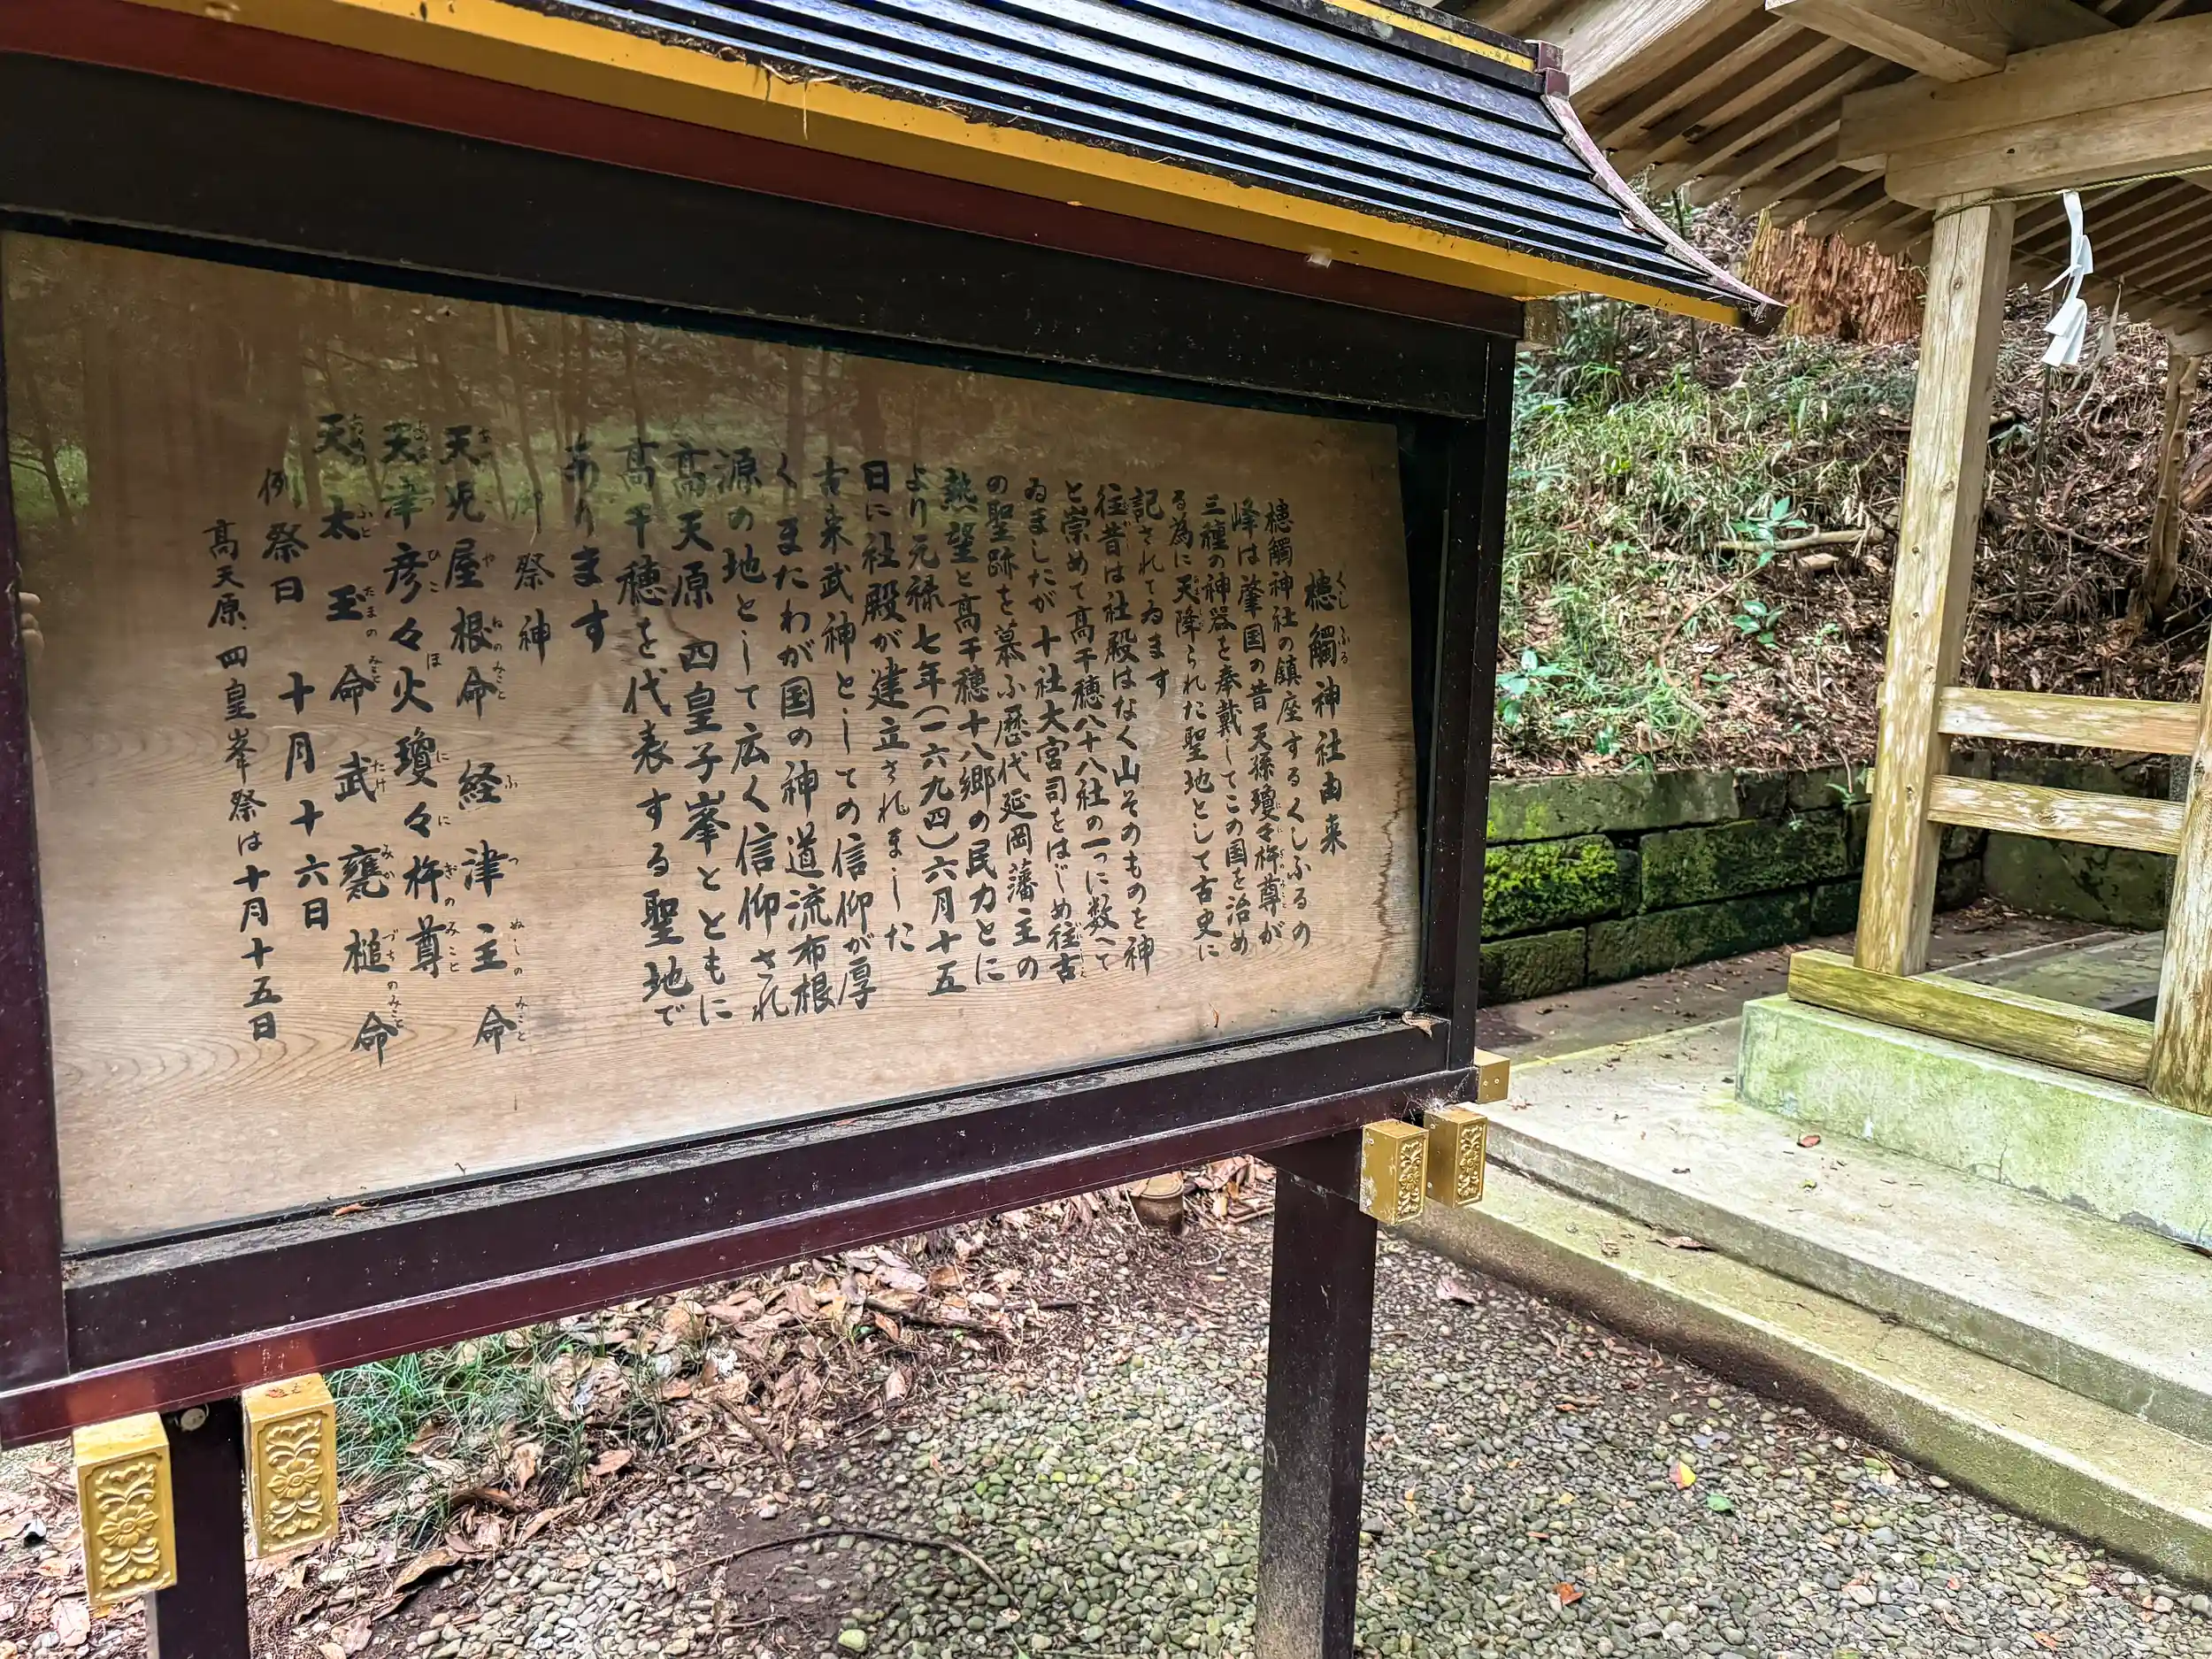 槵觸神社由来
槵觸神社の鎮座するくしふるの
峰は肇国の昔天孫瓊々杵尊が
三種の神器を奉戴してこの国を治め
る為に天降られた聖地として古史に
記されてゐます
往昔は社殿はなく山そのものを神
と崇めて高千穂八十八社の一つに数へて
ゐましたが十社大宮司をはじめ往古
の聖跡を慕ふ歴代延岡藩主の
熱望と高千穂十八郷の民力とに
より元禄七年(一六九四)六月十五
日に社殿が建立されました
古来武神としての信仰が厚
くまたわが国の神道流布根
源の地として広く信仰され
高天原四皇子峯とともに
高千穂を代表する聖地で
あります
御祭神
天児屋根命 経津主命
天津彦々火瓊々杵尊
天太玉命 武甕槌命
例祭日 十月十六日
高天原、四皇峯祭は十月十五日